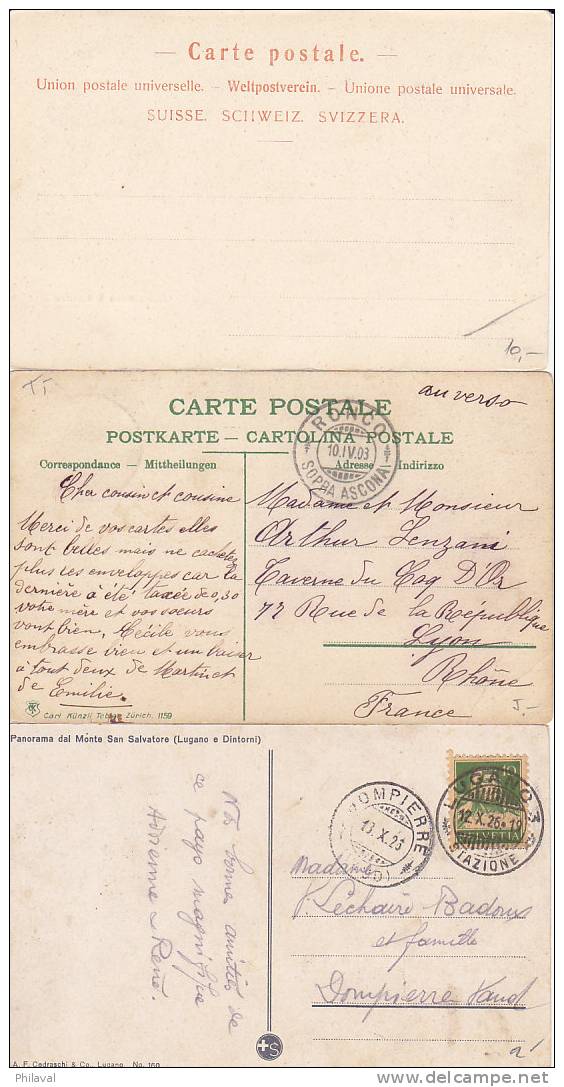 — Carte postale. —
Union postale universelle. – Weltpostverein. – Unione postale universale.
SUISSE. SCHWEIZ. SVIZZERA.
10,-
TT
au verso
CARTE POSTALE
POSTKARTE – CARTOLINA POSTALE
RONCO
10.IV.03
SOPRA ASCONA
Correspondance – Mittheilungen
Adresse Indirizzo
Cher cousin et cousine
Merci de vos cartes elles
sont belles mais ne cachetez
plus les enveloppes car la
dernière à été taxée de 0,30
votre mère et vos sœurs
vont bien, Cécile vous
embrasse bien et un baiser
à tout deux de Martin et
de Emilie.
Madame et Monsieur
Arthur Lenzani
Taverne du Coq D'Or
77 Rue de la République
Lyon
Rhône
France
5.-
Carl Künzli-Tobler, Zürich. 1159
Panorama dal Monte San Salvatore (Lugano e Dintorni)
Nos bonnes amitiés de
ce pays magnifique
Adrienne René.
DOMPIERRE
13.X.26
10
HELVETIA
LUGANO 3
12.X.26
STAZIONE
Madame
Péchaire-Badoux
et famille
Dompierre Vaud
+S
A. F. Cedraschi & Co., Lugano. No. 160
Philaval
delcampe.net